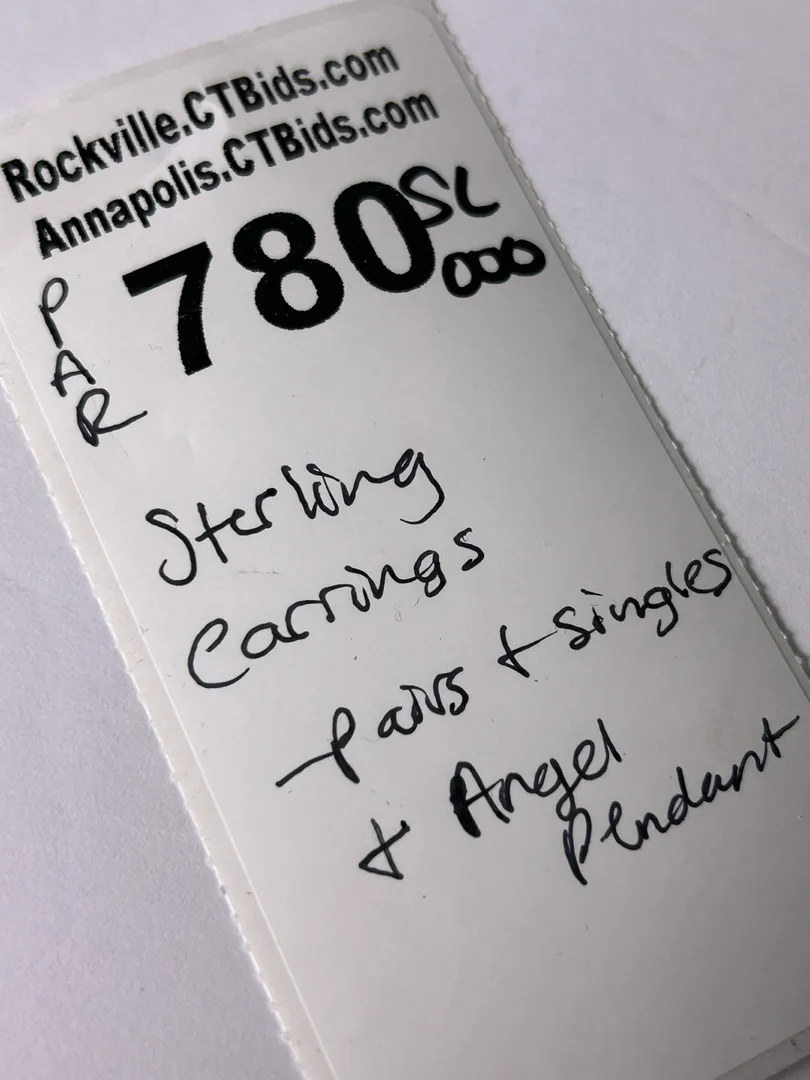 Rockville.CTBids.com
Annapolis.CTBids.com
780 SL
000
PAR
Sterling
Earrings
- pairs + singles
+ Angel
Pendant